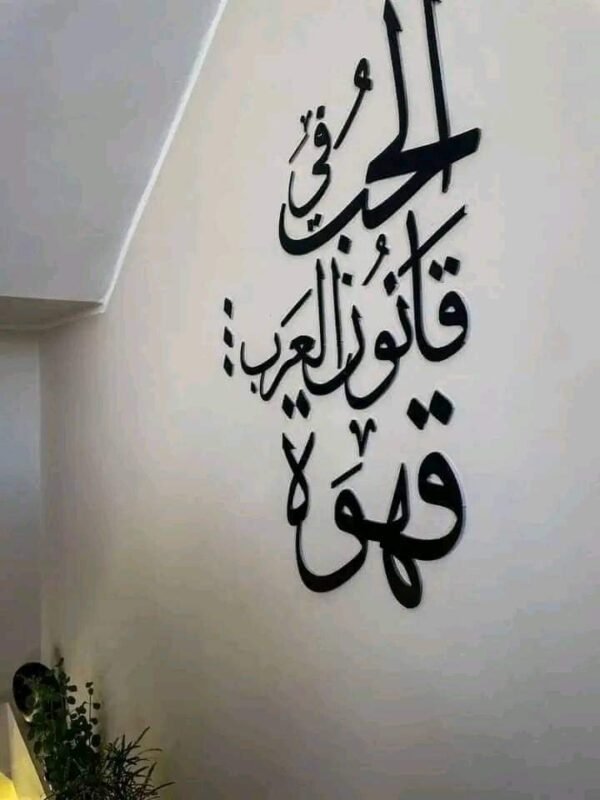 الحُب في
قانُون العَرَب :
قهَوة